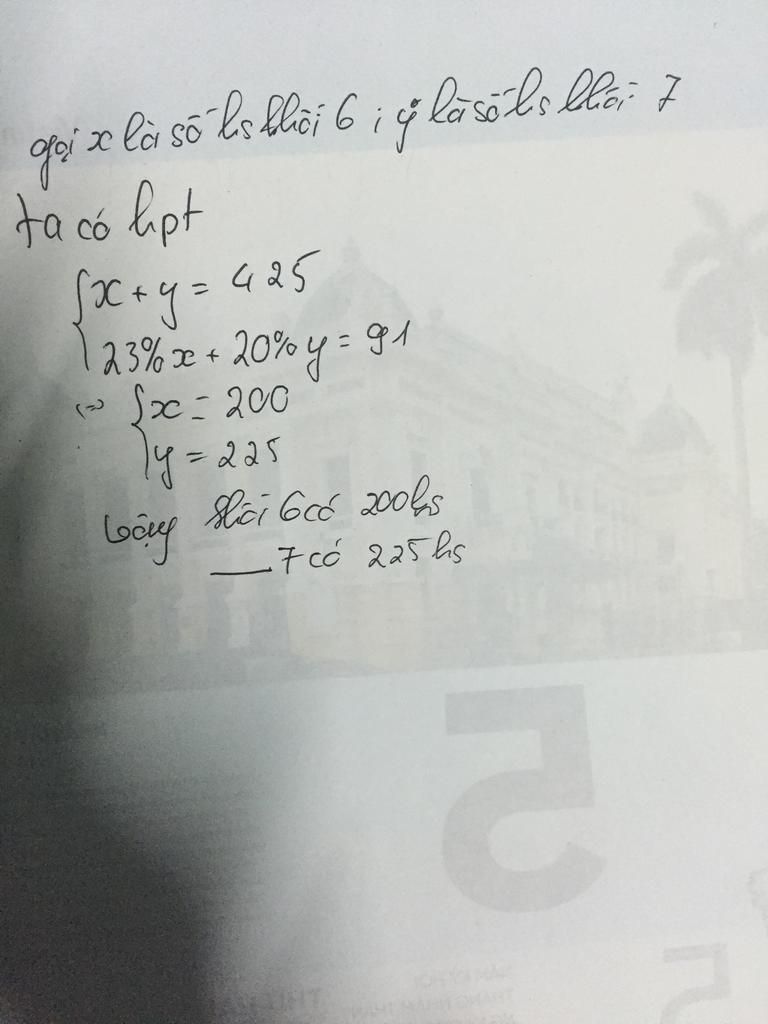 gọi x là số hs khối 6 ; y là số hs khối 7
ta có hpt
{x + y = 425
23%x + 20%y = 91
<=> {x = 200
y = 225
vậy khối 6 có 200 hs
__ 7 có 225 hs
5
5